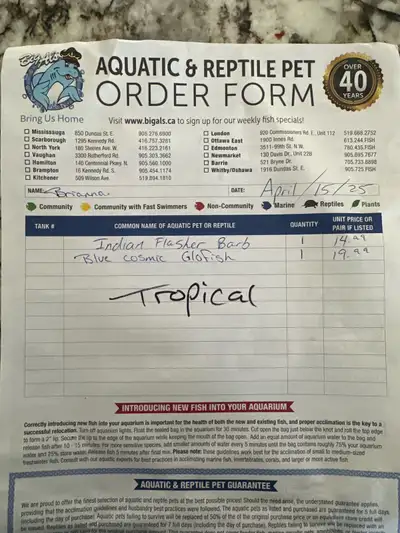 Big Al's
AQUATIC & REPTILE PET
ORDER FORM
OVER
40
YEARS
Bring Us Home
Visit www.bigals.ca to sign up for our weekly fish specials!
Mississauga 850 Dundas St. E. 905.276.6900
Scarborough 1295 Kennedy Rd. 416.757.3281
North York 180 Steeles Ave. W. 416.223.2161
Vaughan 3300 Rutherford Rd. 905.303.3662
Hamilton 140 Centennial Pkwy. N. 905.560.1000
Brampton 16 Kennedy Rd. S. 905.454.1174
Kitchener 509 Wilson Ave. 519.894.1810
London 920 Commissioners Rd. E., Unit 112 519.668.2752
Ottawa East 1900 Innes Rd. 613.244.FISH
Edmonton 3511-99th St. N.W. 780.435.FISH
Newmarket 130 Davis Dr., Unit 22B 905.895.7677
Barrie 521 Bryne Dr. 705.725.8898
Whitby/Oshawa 1916 Dundas St. E. 905.725.FISH
NAME: Brianna DATE: April/15/25
Community Community with Fast Swimmers Non-Community Marine Reptiles Plants
TANK # COMMON NAME OF AQUATIC PET OR REPTILE QUANTITY UNIT PRICE OR PAIR IF LISTED
Indian Flasher Barb 1 14.99
Blue cosmic Glofish 1 19.99
Tropical
INTRODUCING NEW FISH INTO YOUR AQUARIUM
Correctly introducing new fish into your aquarium is important for the health of both the new and existing fish, and proper acclimation is the key to a
successful relocation. Turn off aquarium lights. Float the sealed bag in the aquarium for 30 minutes. Cut open the bag just below the knot and roll the top edge
to form a 2" lip. Secure the lip to the edge of the aquarium while keeping the mouth of the bag open. Add an equal amount of aquarium water to the bag and
release fish after 10 - 15 minutes. For more sensitive species, add smaller amounts of water every 5 minutes until the bag contains roughly 75% your aquarium
water and 25% store water. Release fish 5 minutes after final mix. Please note: these guidelines work best for the acclimation of small to medium-sized
freshwater fish. Consult with our aquatic experts for best practices in acclimating marine fish, invertebrates, corals, and larger or more active fish.
AQUATIC & REPTILE PET GUARANTEE
We are proud to offer the finest selection of aquatic and reptile pets at the best possible prices! Should the need arise, the understated guarantee applies,
providing that the acclimation guidelines and husbandry best practices were followed. The aquatic pets as listed and purchased are guaranteed for 5 full days
(including the day of purchase). Aquatic pets failing to survive will be replaced at 50% of the of the original purchase price
issued. Reptiles as listed and purchased are guaranteed for 7 full days (including the day of purchase). Reptiles failing to survive will be replaced with an